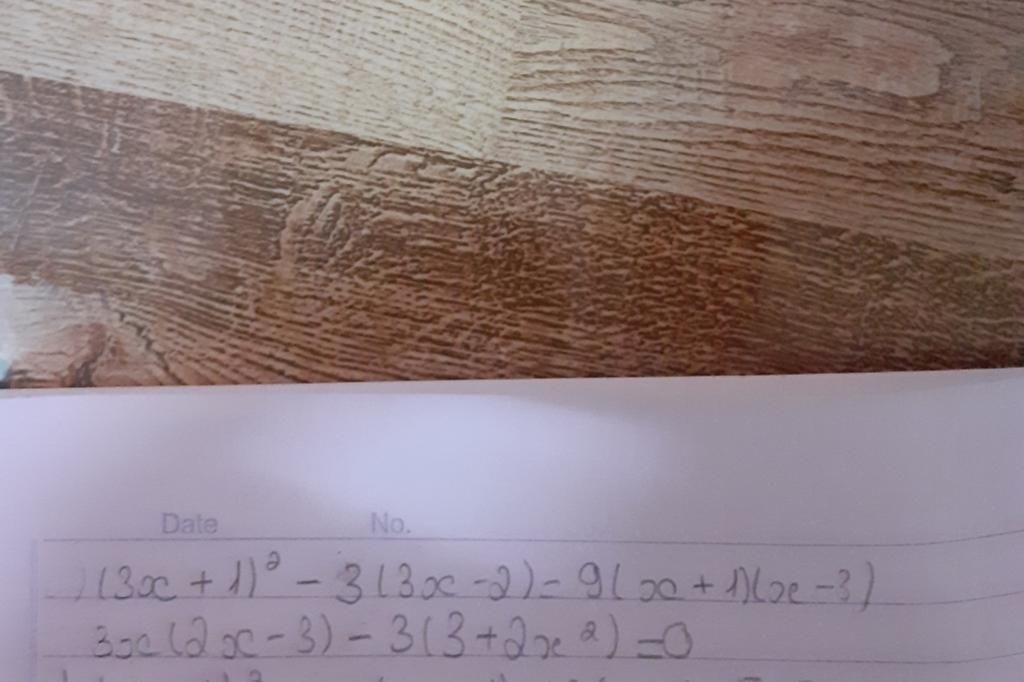 Date No.
) (3x + 1)² - 3(3x - 2) = 9(x + 1)(x - 3)
3x(2x - 3) - 3(3 + 2x²) = 0